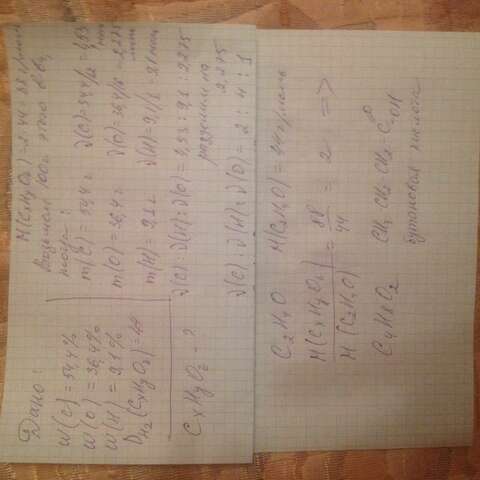 Дано:
W(C) = 54,4%
W(O) = 36,4%
W(H) = 9,1%
D H2 (CxHyOz) = 44
CxHyOz - ?
M(CxHyOz) = 2·44 = 88 г/моль
Возьмем 100г этого в-ва,
тогда:
m(C) = 54,4 г ν(C) = 54,4/12 = 4,53 моль
m(O) = 36,4 г ν(O) = 36,4/16 = 2,275 моль
m(H) = 9,1 г ν(H) = 9,1/1 = 9,1 моль
ν(C) : ν(H) : ν(O) = 4,53 : 9,1 : 2,275
разделим на
2,275
ν(C) : ν(H) : ν(O) = 2 : 4 : 1
C2H4O M(C2H4O) = 44 г/моль
M(CxHyOz) / M(C2H4O) = 88/44 = 2 =>
C4H8O2 CH3-CH2-CH2-C=O-OH
бутановая кислота